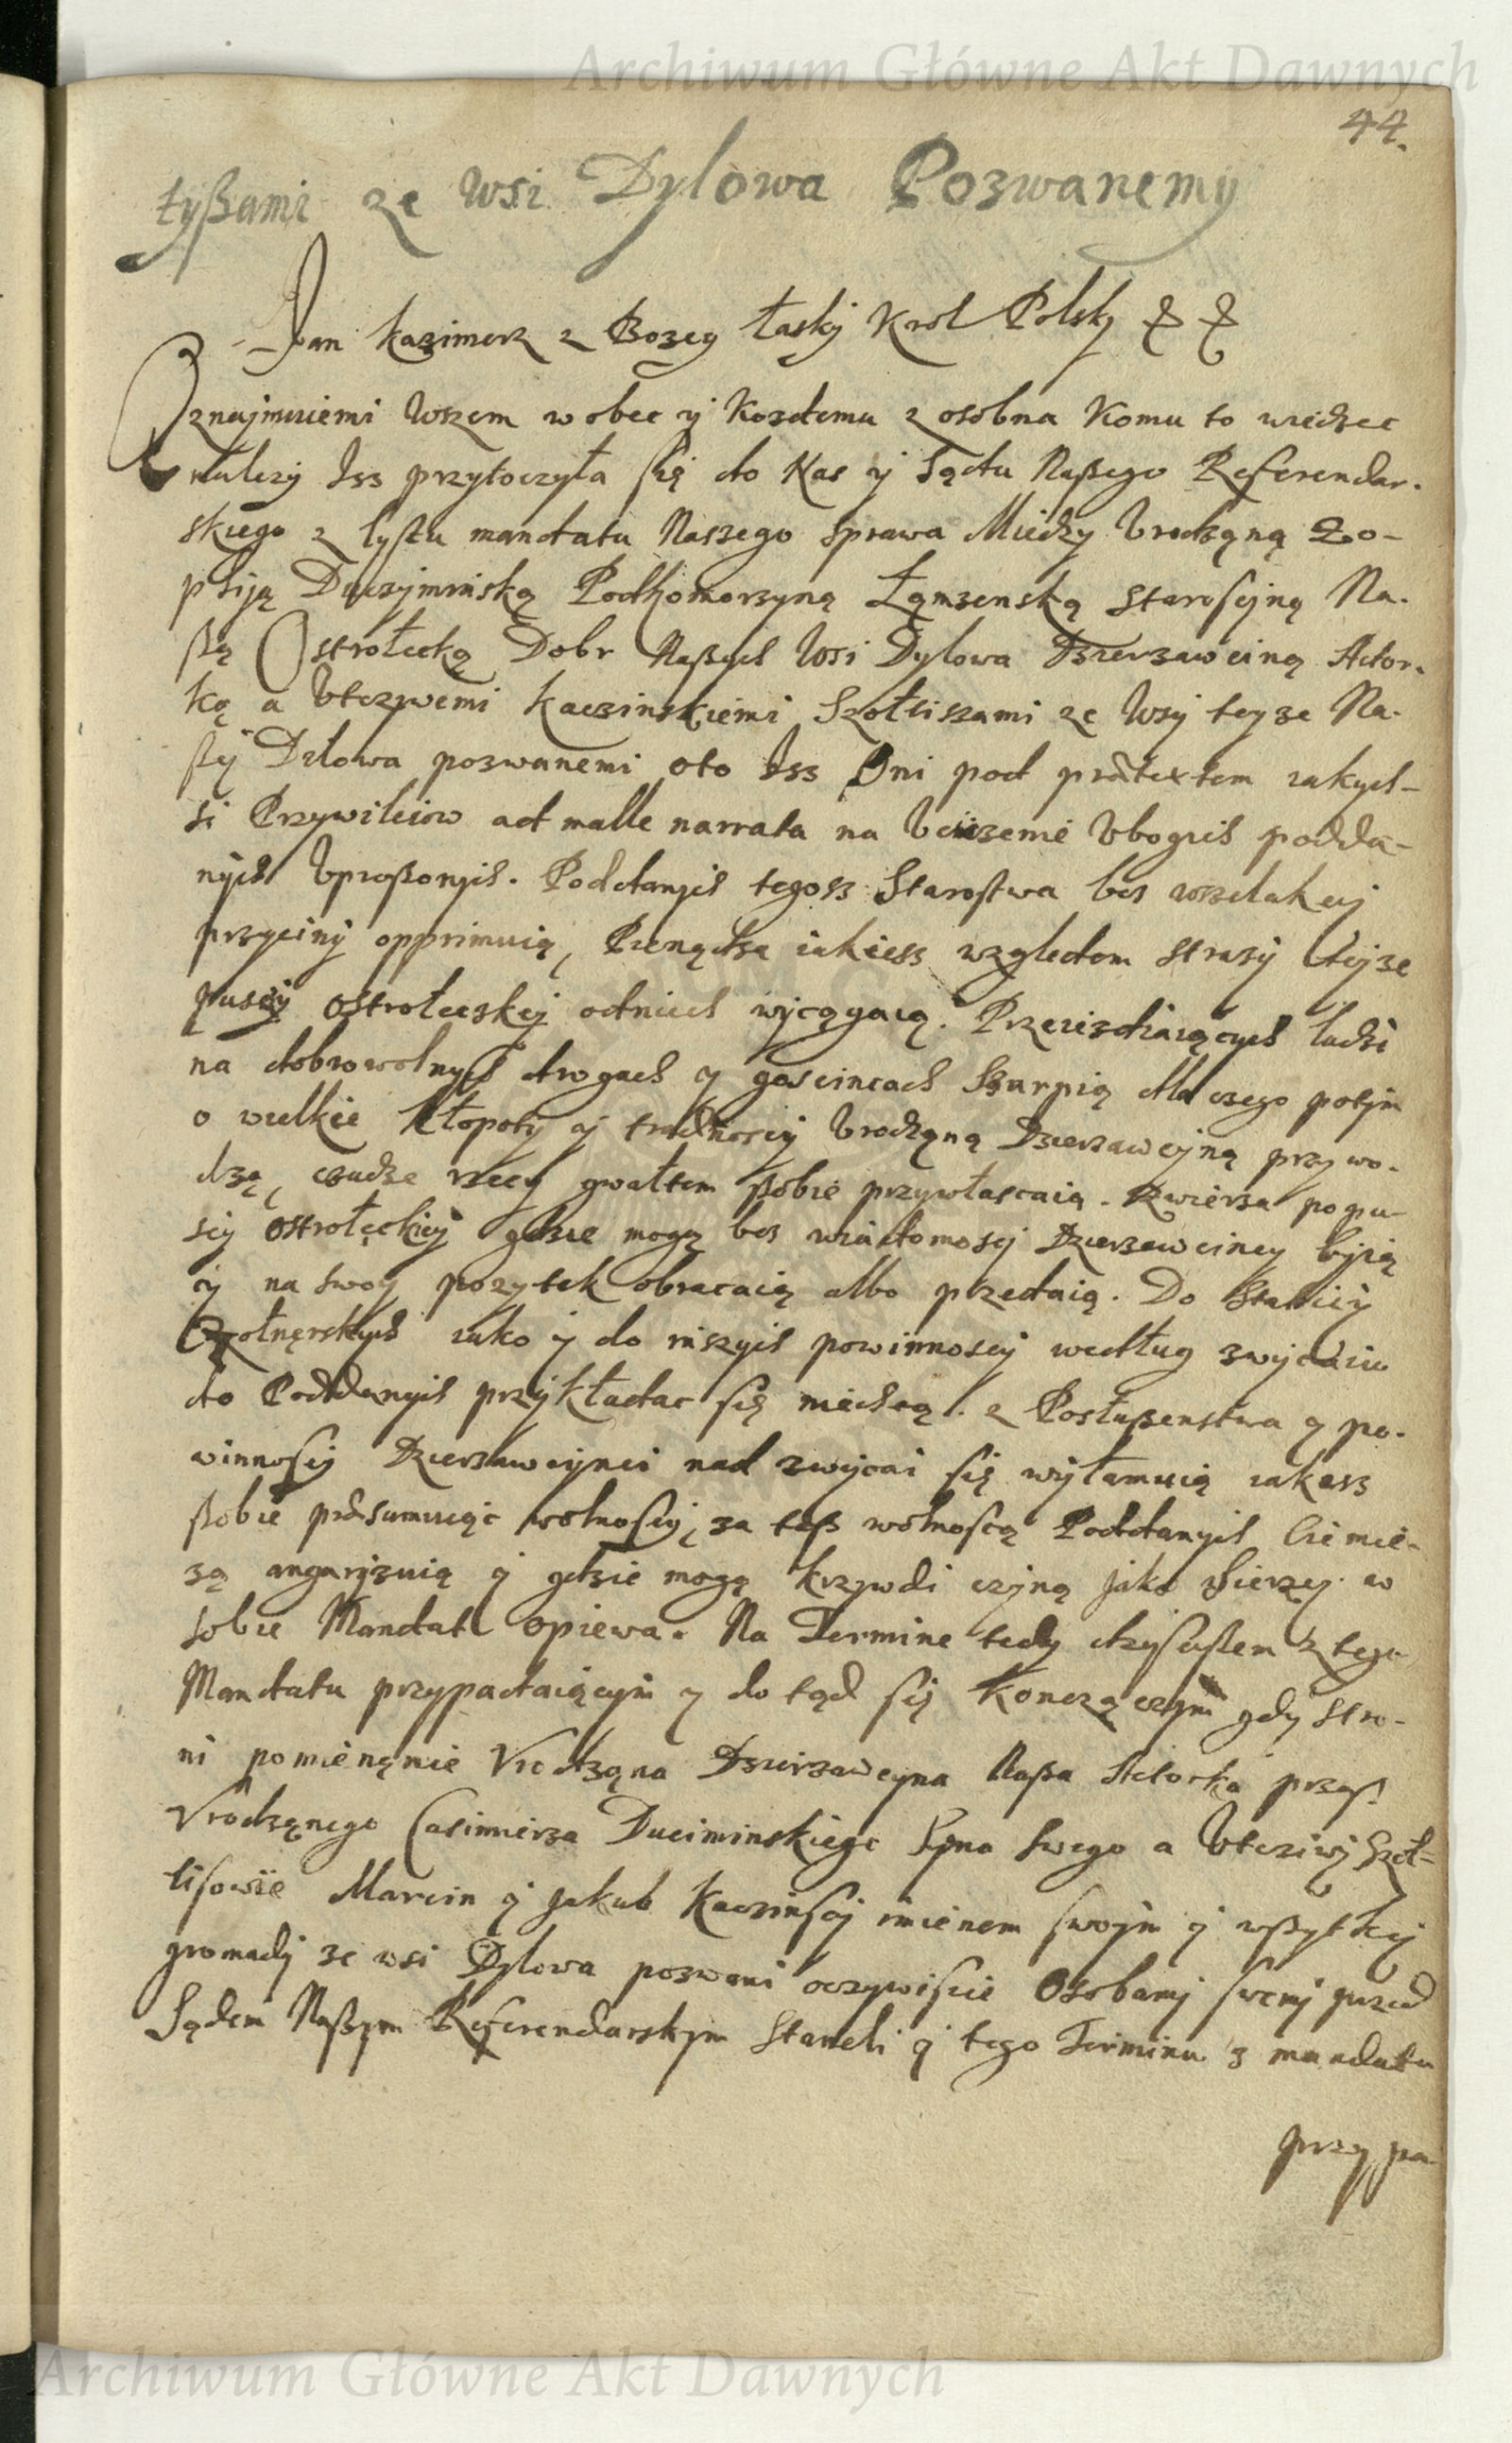 Archiwum Główne Akt Dawnych
44.
tyßami ze Wsi Dylowa Pozwanemy
Jan Kazimerz z Bozey Łasky Krol Polsky
Oznaymuiemi Wszem wobec y Kozdemu z osobna Komu to wiedzec
nalezy Isz przytoczyła się do Nas y Sądu Naßego Referendar-
skiego z lystu mandatu Naszego sprawa Miedzy Vrodzoną Zo-
phiją Duczyminską Podkomorzyną Łomzenską Starosciną Na-
ßą Ostrołecką Dobr Naßych Wsi Dylowa Dzierzawciną Actor-
ką a Vtczywemi Kaczinskiemi Szołtiszami ze Wsy teyze Na-
ßej Dilowa pozwanemi oto Isz Oni pod prætextem iakych-
si Przywileiow ad malle narrata na Vciązenie Vbogich podda-
nych Vproßonych. Poddanych tegosz Starostwa bes wszelakiej
przyciny opprimuią, Pieniądze iakiess względem strazy tejze
puscy Ostrołeckiej odnich wyciągaią. Przeiezdzaiących ludzi
na dobrowolnych drogach y goscincach Szarpią dla czego potym
o wielkie kłopoty y trudnoscy Vrodzoną Dzierzawcyną przywo-
dzą, cudze rzecy gwałtem ßobie przywłascaią. Zwierza popu-
scy Ostrołęckiej gdzie mogą bes wiadomoscy Dzierzawciney byią
y na swoy pozytek obracaią albo przedaią. Do Stacicy
Zołnęrskych iako y do inszych powinnoscy według zwyciaiu
do Poddanych przykładac się niechcą. z Posłußenstwa y po-
winnoscy Dzierzawcynei nad zwyczai się wyłamuią iakasz
ßobie præsumuiąc wolnoscy, za tąß wolnoscą Poddanych Ciemie-
zą angaryzuią y gdzie mogą krzywdi czyną jako szierzey w
sobie Mandat opiewa. Na Terminie tedy dzysießem z tego
Mandatu przypadaiącym y do tąd się Konczączym gdy stro-
ni pomienęnie Vrodzona Dzierzawcyna Naßa Actorka przes
Vrodzonego Casimierza Duciminskiego Syna swego a Vtcziwy Szoł-
tisowie Marcin y Jakub Kaczinscy imienem swoym y wßytkiej
gromady ze wsi Dylowa pozwani oczywiscie Osobamy swemy przed
Sądem Naßym Referendarskym Staneli y tego Terminu z mandatu
przypa-
Archiwum Główne Akt Dawnych